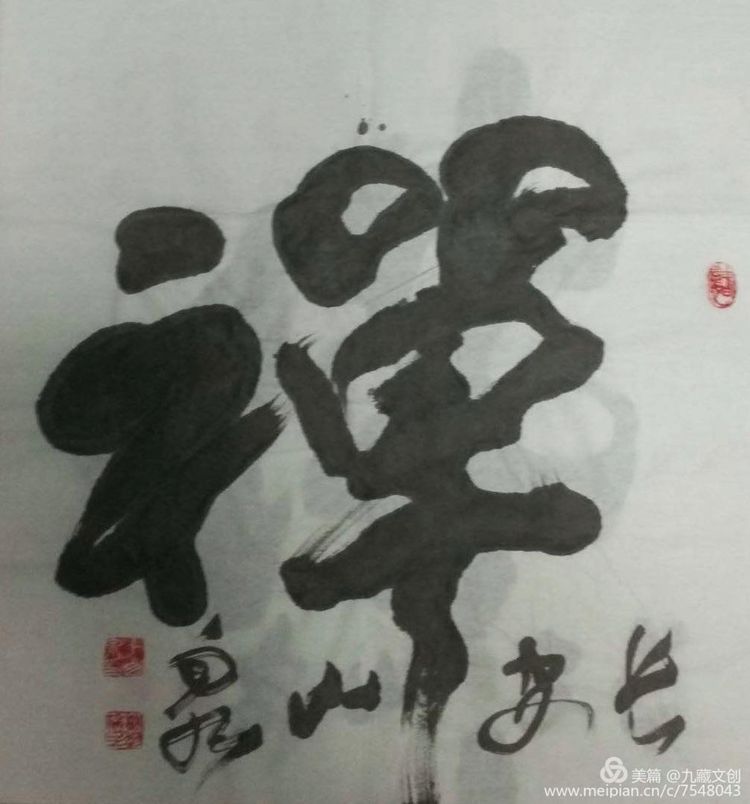 禪
长安山泉
美篇 @九藏文创
www.meipian.cn/c/7548043